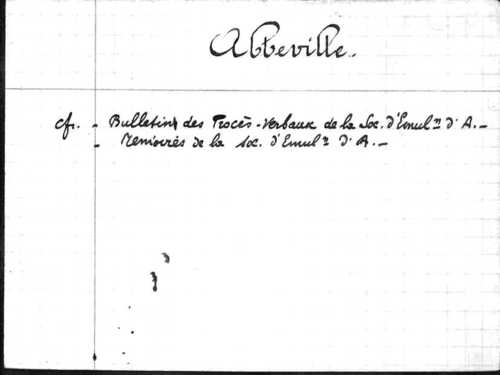 Abbeville.
cfr. - Bulletins des Procès-Verbaux de la Soc. d'Emul.n d'A. -
- Mémoires de la Soc. d'Emul.n d'A. -